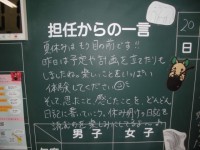 担任からの一言
夏休みはもう目の前です!!
昨日は予定や計画を立てたりも
しましたね。楽しいことをいっぱい
体験してください
そして、思ったこと感じたことを、どんどん
日記に書いていこう。休み明け、日記を
読むのを楽しみにしてますよ
男子 女子
20
日